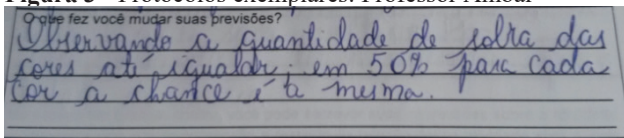 Figura 3 – Protocolos exemplares: Professor Amoar
O que fez você mudar suas previsões?
Observando a quantidade de solta das
cores até igualar; em 50% para cada
cor a chance é a mesma.